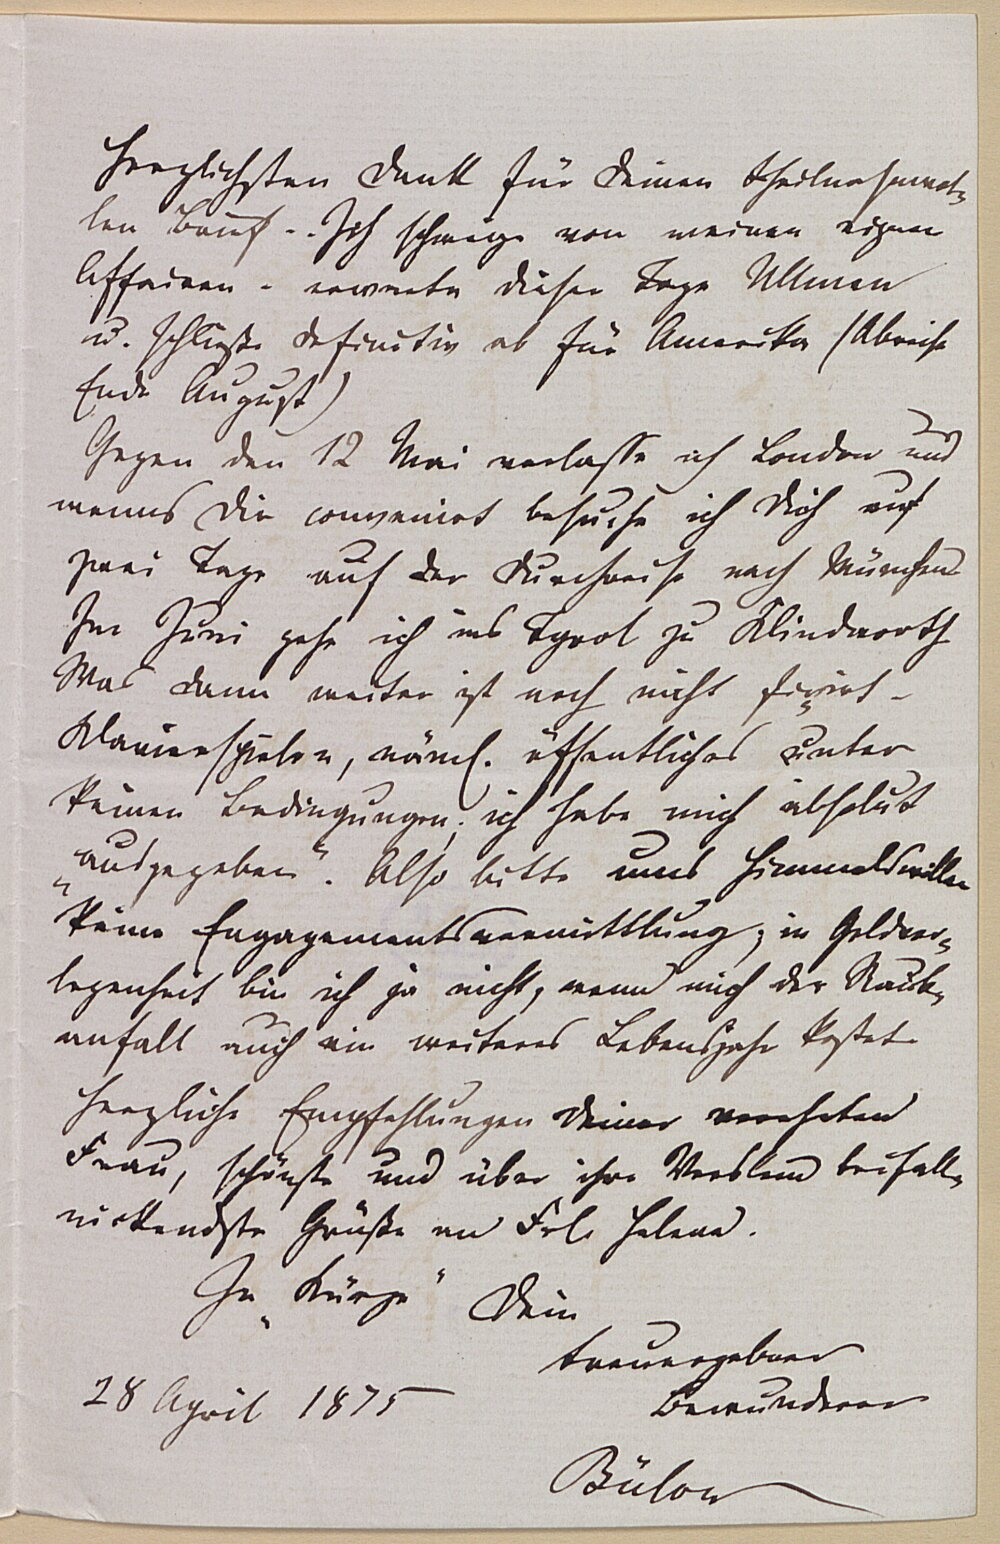 Herzlichsten Dank für Deinen theilnahmvol-
len Brief -. Ich schweige von meinen eignen
Affairen - erwarte dieser Tage Ullman
u. schließe definitiv ab für Amerika (Abreise
Ende August)
Gegen den 12 Mai verlasse ich London und
wenns Dir convenirt besuche ich Dich auf
zwei Tage auf der Durchreise nach München
Im Juni gehe ich ins Tyrol zu Klindworth
Was dann weiter ist noch nicht fixirt -
Klavierspielen, näml. öffentliches unter
keinen Bedingungen; ich habe mich absolut
„ausgegeben“. Also bitte ums Himmelswillen
keine Engagementsvermittlung; in Geldver-
legenheit bin ich ja nicht, wenn mich der Raub-
anfall auch ein weiteres Lebensjahr kostet.
Herzliche Empfehlungen Deiner verehrten
Frau, schönste und über ihre beifall-
nickendste Grüße an Frl. Helene.
In „Kürze“ Dein
treuergebner
Bewunderer
28 April 1875
Bülow